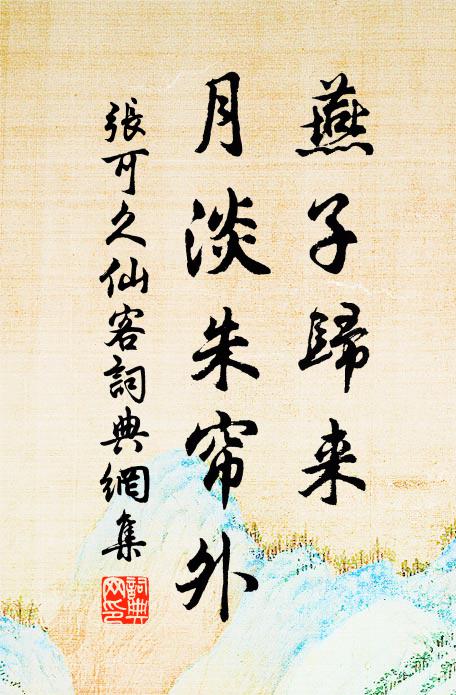 燕子歸来
月淡朱帘外
張可久仙客詞典網集
詞典网印